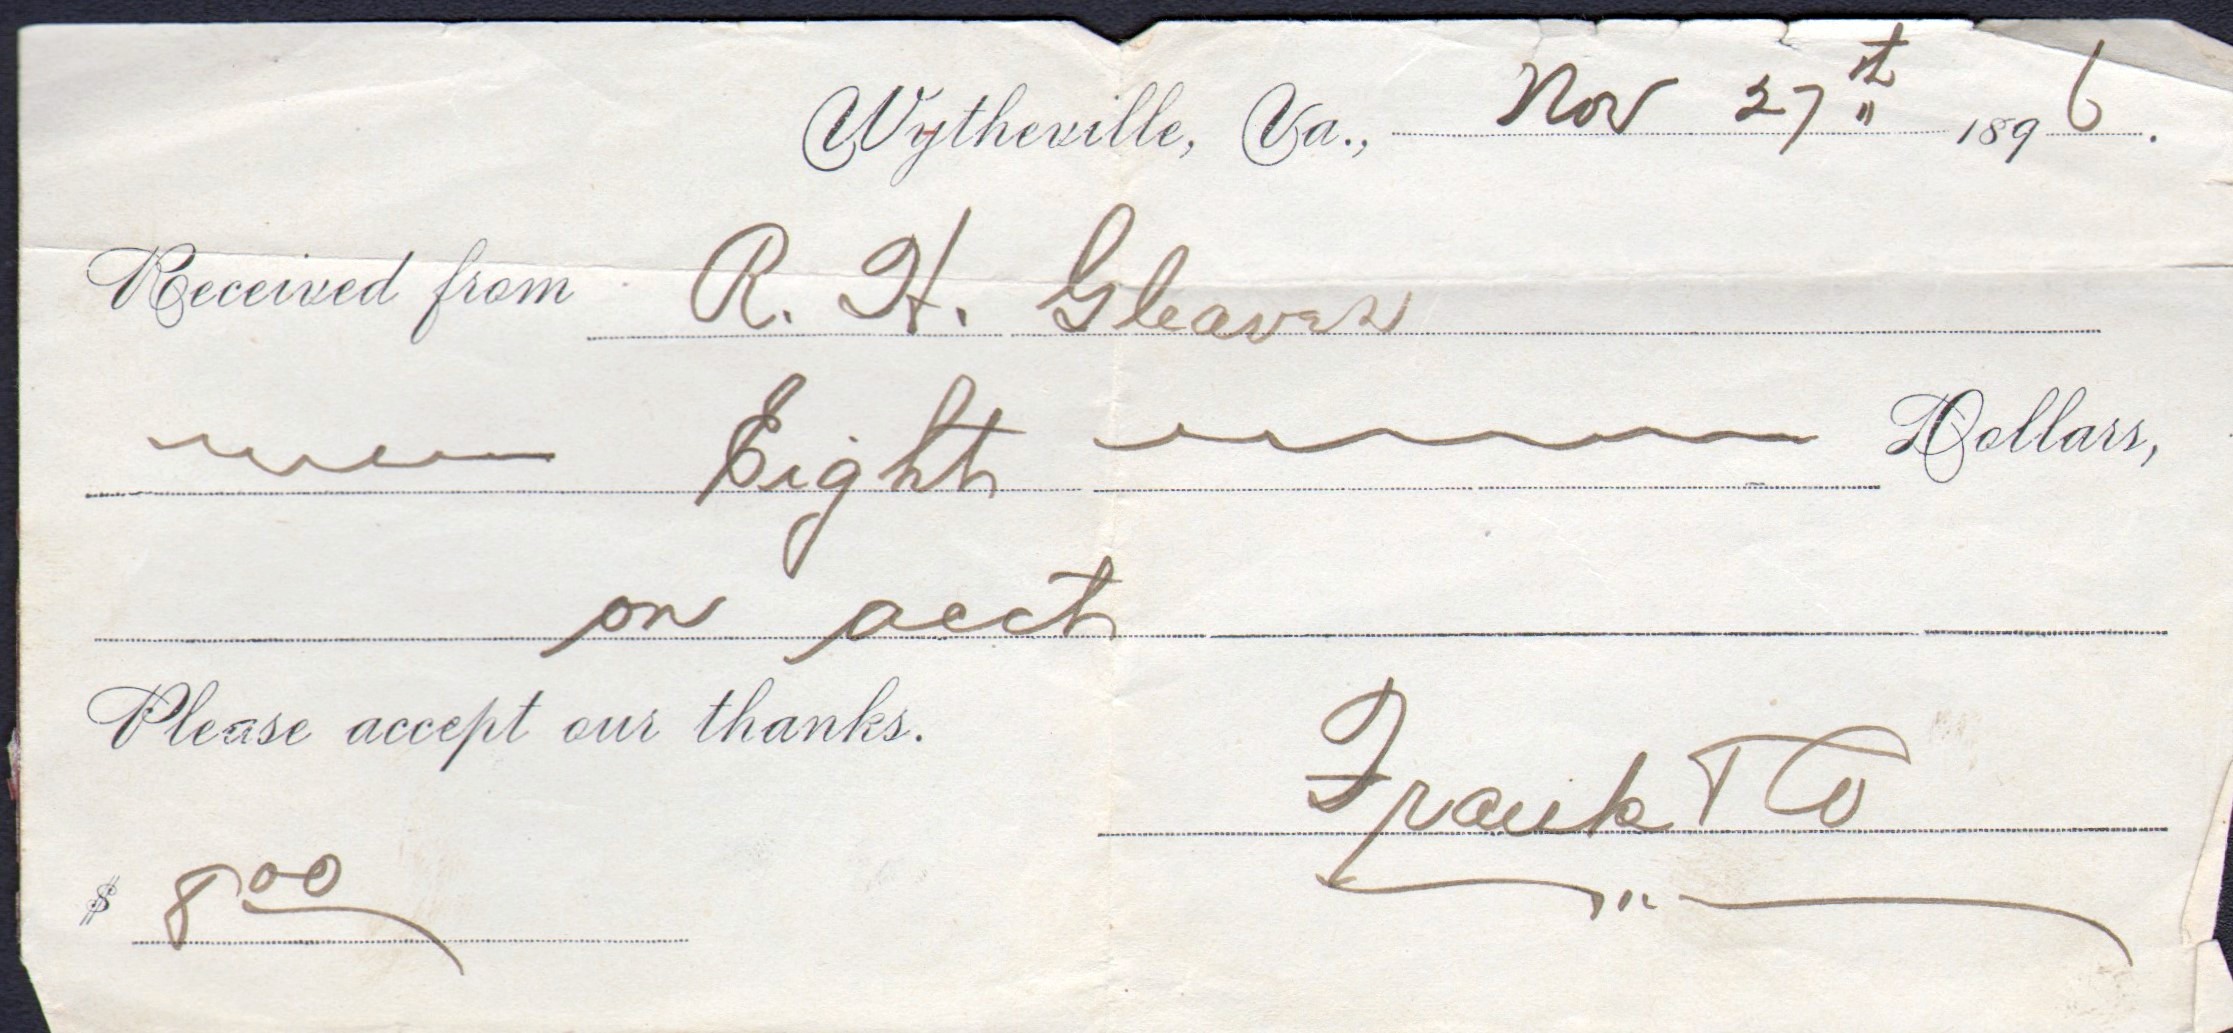 Wytheville, Va., Nov 27th 1896.
Received from R. H. Gleaves
Eight Dollars,
on acct
Please accept our thanks.
Frank & Co
$ 8 00